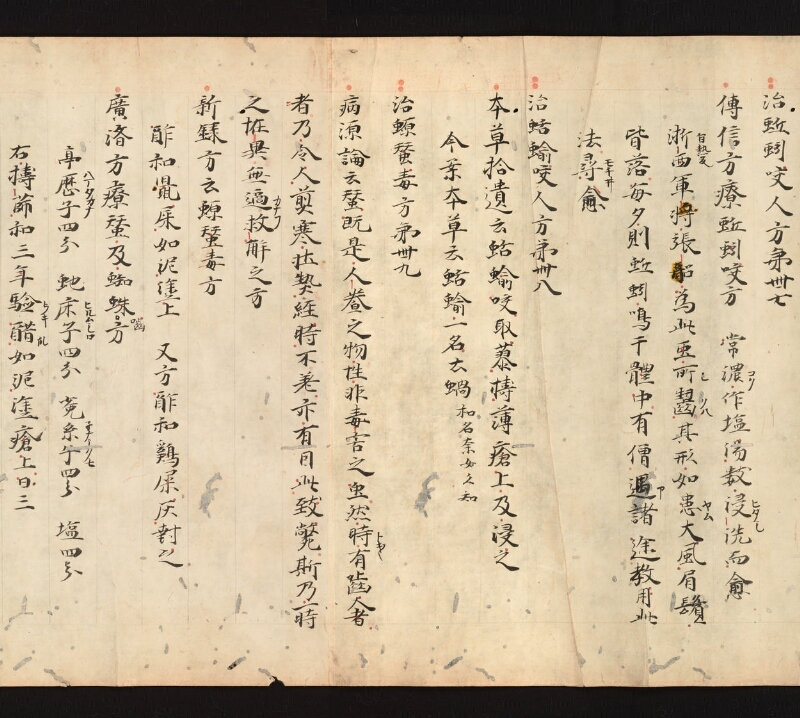 治蚯蚓咬人方第卅七
傳信方療蚯蚓咬方 常濃作塩湯数浸洗而愈
浙西軍将張韶為此虫所齧其形如患大風眉鬚
皆落每夕則蚯蚓鳴于體中有僧遇諸途教用此
法尋愈
治蛞蝓咬人方第卅八
本草拾遺云蛞蝓咬取蓼擣薄瘡上及浸之
今案本草云蛞蝓一名去蝸 和名奈女久知
治螈蚕毒方第卅九
病源論云蚕既是人養之物性非毒害之虫然時有齧人者
者乃令人憎寒壮熱経時不差亦有因此致斃斯乃一時
之恠異無逎救解之方
新録方云螈蚕毒方
酢和鼠屎如泥塗上 又方酢和鷄屎灰封之
廣済方療蚕及蜘蛛齧方
亭歴子四分 虵床子四分 菟糸子四分 塩四分
右擣篩和三年験醋如泥塗瘡上日三